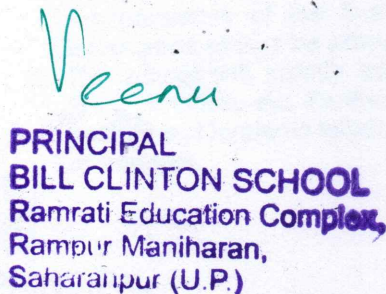 Veenu
PRINCIPAL
BILL CLINTON SCHOOL
Ramrati Education Complex,
Rampur Maniharan,
Saharanpur (U.P.)